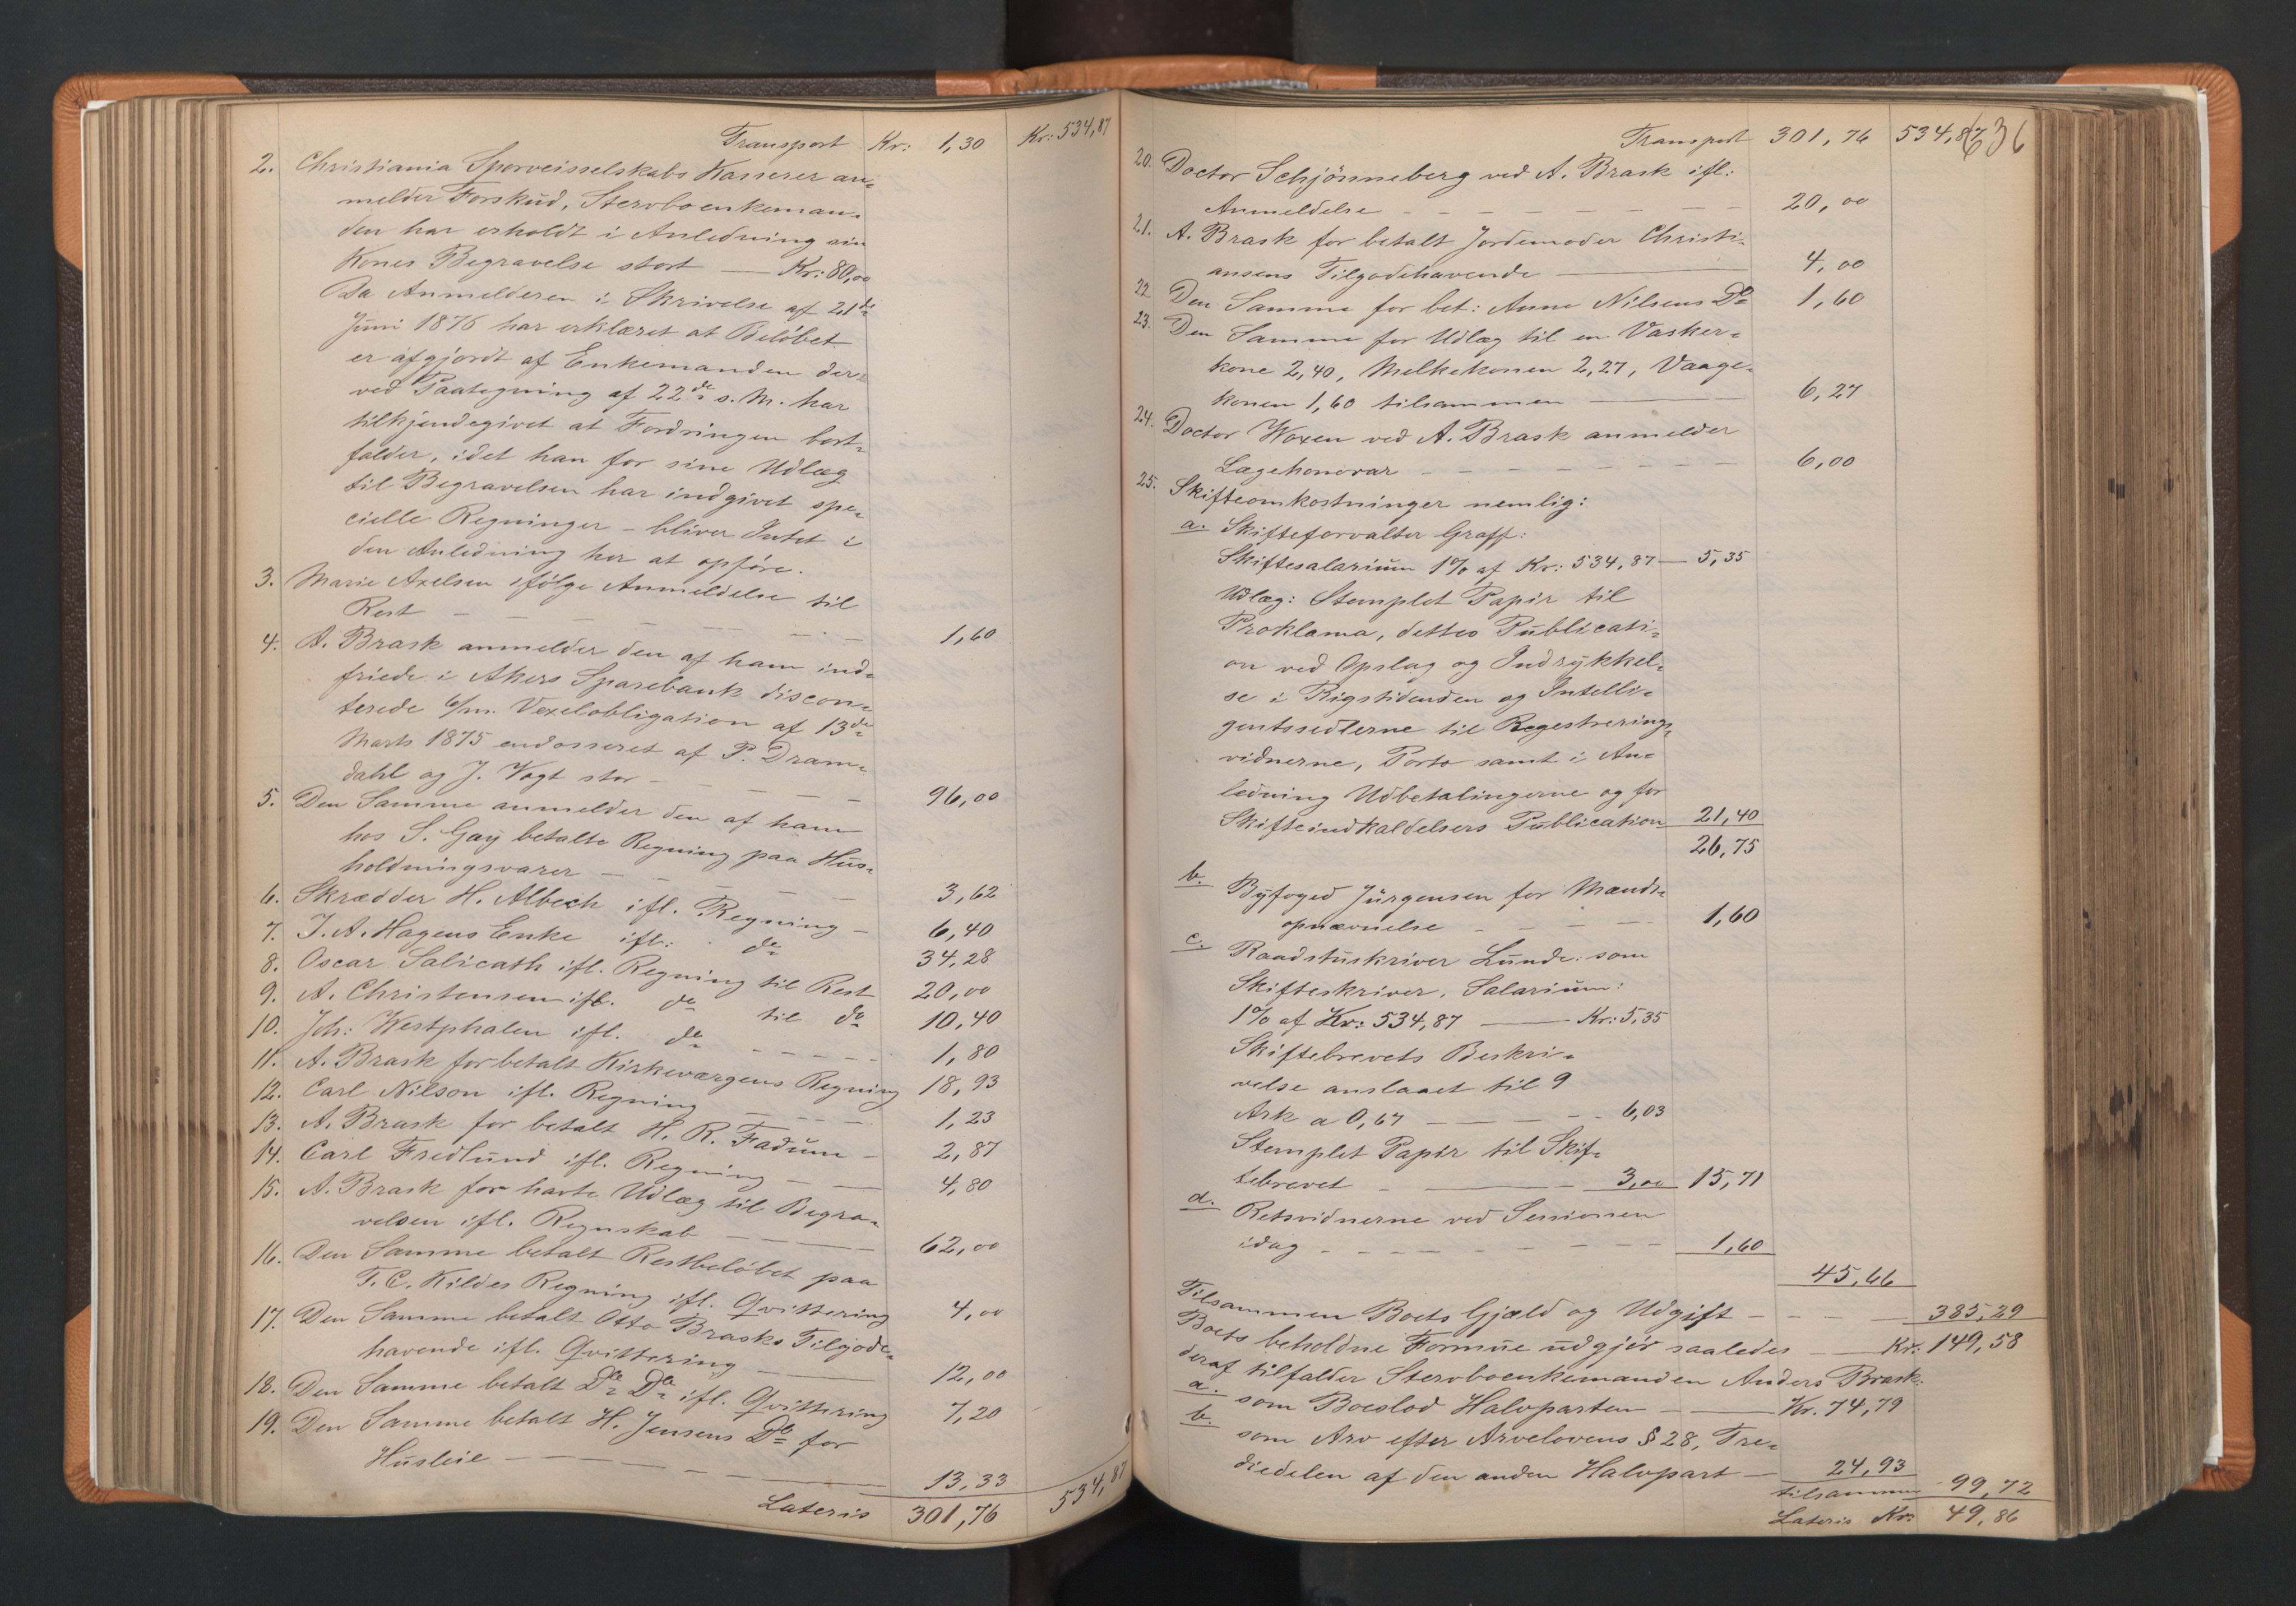 Transport Kr: 1,30 Kr: 534,87
2. Christiania Sporveisselskabs Kasserer an-
melder Forskud, Stervboenkeman-
den har erholdt i Anledning sin
Kones Begravelse stort — Kr: 80,00
Da Anmelderen i Skrivelse af 21de
Juni 1876 har erklæret at Beløbet
er afgjordt af Enkemanden der-
ved Paategning af 22de s. M. har
tilkjendegivet at Fordringen bort-
falder, idet han for sine Udlæg
til Begravelsen har indgivet spe-
cielle Regninger – bliver Intet i
den Anledning her at opføre.
3. Marie Axelsen ifølge Anmeldelse til
Rest — 1,60
4. A. Brask anmelder den af ham ind-
friede i Akers Sparebank discon-
terede 6/m. Vexelobligation af 13de
Marts 1875 endosseret af P. Dram-
dahl og J. Vogt stor — 96,00
5. Den Samme anmelder den af ham
hos S. Gay betalte Regning paa Hus-
holdningsvarer — 3,62
6. Skrædder H. Albech ifl. Regning — 6,40
7. J. A. Hagens Enke ifl: do 34,28
8. Oscar Salicath ifl. Regning til Rest 20,00
9. A. Christensen ifl. do til do 10,40
10. Joh: Westphalen ifl. do — 1,80
11. A. Brask for betalt Kirkeværgens Regning 18,93
12. Carl Nilson ifl. Regning — 1,23
13. A. Brask for betalt H. R. Fadum — 2,87
14. Carl Fredlund ifl. Regning — 4,80
15. A. Brask for havte Udlæg til Begra-
velsen ifl. Regnskab — 62,00
16. Den Samme betalt Restbeløbet paa
T. C. Kildes Regning ifl. Qvittering 4,00
17. Den Samme betalt Otto Brasks Tilgode-
havende ifl. Qvittering — 12,00
18. Den Samme betalt Do Do ifl. Qvittering 7,20
19. Den Samme betalt H. Jensens Do for
Husleie — 13,33
Lateris 301,76 534,87
Transport 301,76 534,87
636
20. Doctor Schjönneberg ved A. Brask ifl:
Anmeldelse — 20,00
21. A. Brask for betalt Jordemoder Christi-
ansens Tilgodehavende — 4,00
22 Den Samme for bet: Anne Nilsens Do 1,60
23. Den Samme for Udlæg til en Vasker-
kone 2,40, Melkekonen 2,27, Vaage-
konen 1,60 tilsammen — 6,27
24. Doctor Woxen ved A. Brask anmelder
Lægehonorar — 6,00
25. Skifteomkostninger nemlig:
a. Skifteforvalter Graff:
Skiftesalarium 1% af Kr: 534,87 — 5,35
Udlæg: Stemplet Papir til
Proklama, dettes Publicati-
on ved Opslag og Indrykkel-
se i Rigstidenden og Intelli-
gentssedlerne til Regestrerings-
vidnerne, Porto samt i An-
ledning Udbetalingerne og for
Skifteindkaldelsers Publication 21,40
26,75
b. Byfoged Jürgensen for Mænds-
opnævnelse — 1,60
c. Raadstuskriver Lunde: som
Skifteskriver, Salarium:
1% af Kr: 534,87 — Kr: 5,35
Skiftebrevets Beskri-
velse anslaaet til 9
Ark a 0,67 — 6,03
Stemplet Papir til Skif-
tebrevet — 3,00 15,71
d. Retsvidnerne ved Sessionen
idag — 1,60
45,66
Tilsammen Boets Gjæld og Udgift — 385,29
Boets beholdne Formue udgjør saaledes — Kr. 149,58
deraf tilfalder Stervboenkemanden Anders Brask:
a. som Boeslod Halvparten — Kr. 74,79
b. som Arv efter Arvelovens § 28, Tre-
diedelen af den anden Halvpart — 24,93
tilsammen 99,72
Lateris Kr: 49,86